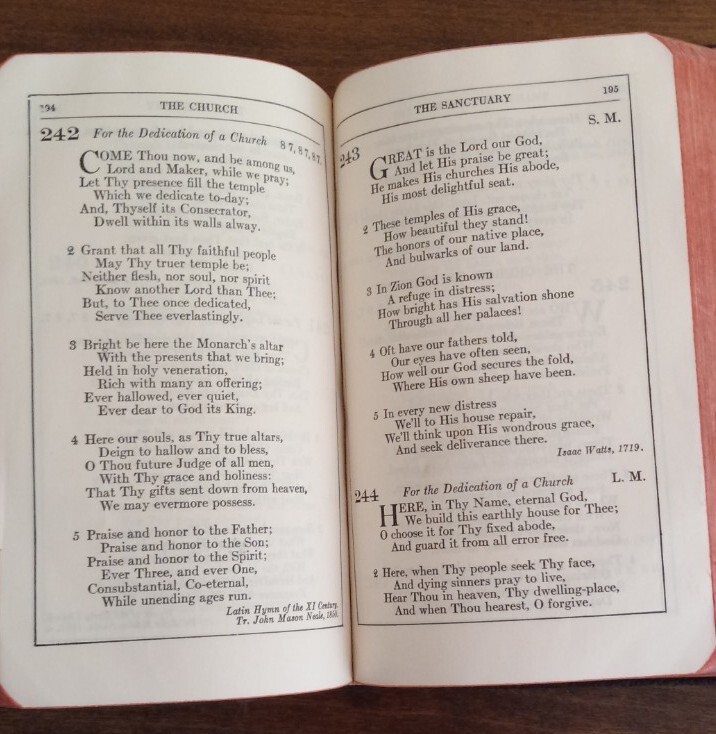 194 THE CHURCH
242 For the Dedication of a Church 8 7, 8 7, 8 7.
COME Thou now, and be among us,
Lord and Maker, while we pray;
Let Thy presence fill the temple
Which we dedicate to-day;
And, Thyself its Consecrator,
Dwell within its walls alway.
2 Grant that all Thy faithful people
May Thy truer temple be;
Neither flesh, nor soul, nor spirit
Know another Lord than Thee;
But, to Thee once dedicated,
Serve Thee everlastingly.
3 Bright be here the Monarch's altar
With the presents that we bring;
Held in holy veneration,
Rich with many an offering;
Ever hallowed, ever quiet,
Ever dear to God its King.
4 Here our souls, as Thy true altars,
Deign to hallow and to bless,
O Thou future Judge of all men,
With Thy grace and holiness:
That Thy gifts sent down from heaven,
We may evermore possess.
5 Praise and honor to the Father;
Praise and honor to the Son;
Praise and honor to the Spirit;
Ever Three, and ever One,
Consubstantial, Co-eternal,
While unending ages run.
Latin Hymn of the XI Century.
Tr. John Mason Neale,
THE SANCTUARY 195
243 S. M.
GREAT is the Lord our God,
And let His praise be great;
He makes His churches His abode,
His most delightful seat.
2 These temples of His grace,
How beautiful they stand!
The honors of our native place,
And bulwarks of our land.
3 In Zion God is known
A refuge in distress;
How bright has His salvation shone
Through all her palaces!
4 Oft have our fathers told,
Our eyes have often seen,
How well our God secures the fold,
Where His own sheep have been.
5 In every new distress
We'll to His house repair,
We'll think upon His wondrous grace,
And seek deliverance there.
Isaac Watts, 1719.
244 For the Dedication of a Church L. M.
HERE, in Thy Name, eternal God,
We build this earthly house for Thee;
O choose it for Thy fixed abode,
And guard it from all error free.
2 Here, when Thy people seek Thy face,
And dying sinners pray to live,
Hear Thou in heaven, Thy dwelling-place,
And when Thou hearest, O forgive.